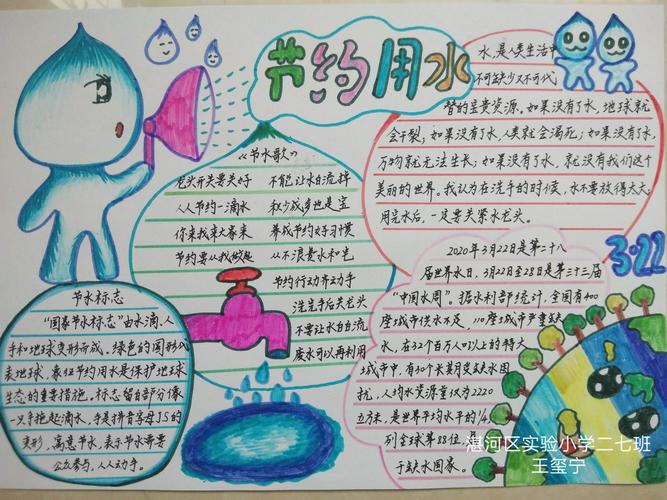 节约用水
水,是人类生活中
不可缺少又不可代
替的宝贵资源。如果没有了水,地球就
会干裂;如果没有了水,人类就会渴死;如果没有了水,
万物就无法生长;如果没有了水,就没有我们这个
美丽的世界。我认为在洗手的时候,水不要放得太大;
用完水后,一定要关紧水龙头。
《节水歌》
龙头开关要关好 不能让水白流掉
人人节约一滴水 积少成多也是宝
你来我来大家来 养成节约好习惯
节约要从我做起 从不浪费水和电
节约行动齐动手
洗完手后关龙头
不要让水白白流
废水可以再利用
3·22
2020年3月22日是第二十八
届世界水日,3月22日至28日是第三十三届
“中国水周”。据水利部统计,全国有400
座城市供水不足,110座城市严重缺
水,在32个百万人口以上的特大
城市中,有30个长期受缺水困
扰,人均水资源量仅为2220
立方米,是世界平均水平的1/4,
列全球第88位,是
于缺水国家。
节水标志
“国家节水标志”由水滴、人
手和地球变形而成。绿色的圆形代
表地球,象征节约用水是保护地球
生态的重要措施。标志留白部分像
一只手托起一滴水,手是拼音字母JS的
变形,寓意节水,表示节水需要
公众参与,人人动手。
湛河区实验小学二七班
王玺宁